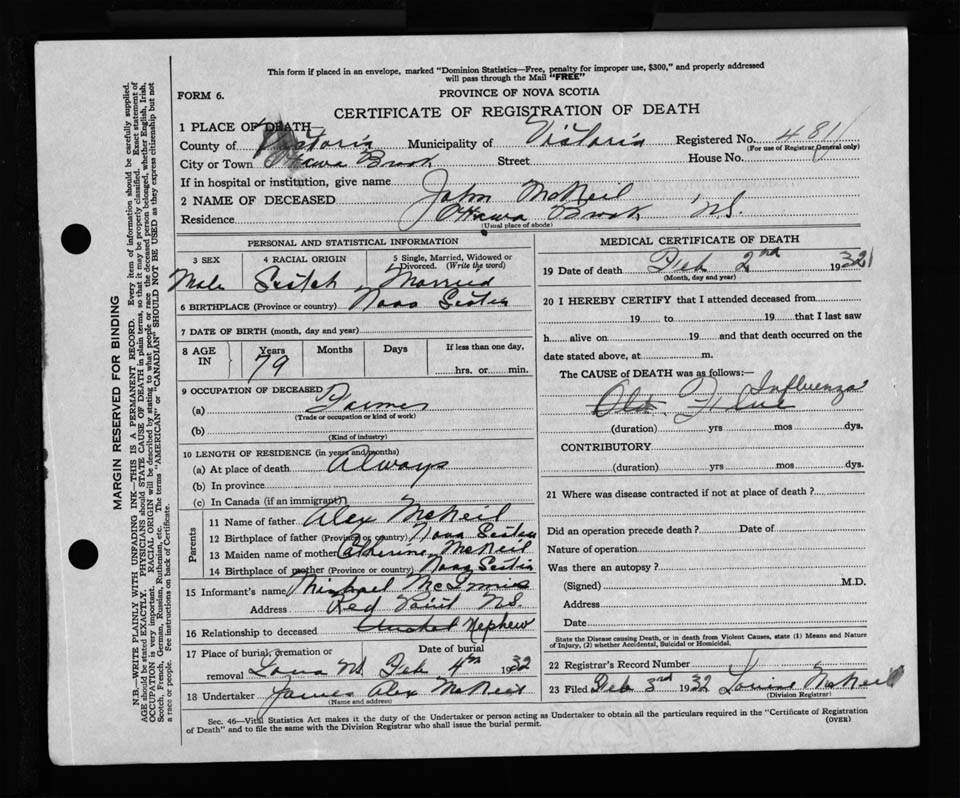 This form if placed in an envelope, marked "Dominion Statistics—Free, penalty for improper use, $300," and properly addressed
will pass through the Mail "FREE"
FORM 6.
PROVINCE OF NOVA SCOTIA
CERTIFICATE OF REGISTRATION OF DEATH
1 PLACE OF DEATH—
County of Victoria Municipality of Victoria Registered No. 4811
(For use of Registrar General only)
City or Town Ottawa Brook Street House No.
If in hospital or institution, give name
2 NAME OF DECEASED John McNeil
Residence Ottawa Brook N.S.
(Usual place of abode)
PERSONAL AND STATISTICAL INFORMATION
3 SEX 4 RACIAL ORIGIN 5 Single, Married, Widowed or
Divorced. (Write the word)
Male Scotch Married
6 BIRTHPLACE (Province or country) Nova Scotia
7 DATE OF BIRTH (month, day and year)
8 AGE IN Years Months Days If less than one day,
79 hrs. or min.
9 OCCUPATION OF DECEASED
(a) Farmer
(Trade or occupation or kind of work)
(b)
(Kind of industry)
10 LENGTH OF RESIDENCE (in years and months)
(a) At place of death Always
(b) In province
(c) In Canada (if an immigrant)
Parents
11 Name of father Alex McNeil
12 Birthplace of father (Province or country) Nova Scotia
13 Maiden name of mother Catherine McNeil
14 Birthplace of mother (Province or country) Nova Scotia
15 Informant's name Michael McInnis
Address Red Point N.S.
16 Relationship to deceased Nephew
17 Place of burial, cremation or Date of burial
removal Iona N.S. Feb 4th 1932
18 Undertaker James Alex McNeil
(Name and address)
MEDICAL CERTIFICATE OF DEATH
19 Date of death Feb 2nd 1932
(Month, day and year)
20 I HEREBY CERTIFY that I attended deceased from
19 to 19 that I last saw
h alive on 19 and that death occurred on the
date stated above, at m.
The CAUSE of DEATH was as follows:—
Influenza
Flue
(duration) yrs mos dys.
CONTRIBUTORY
(duration) yrs mos dys.
21 Where was disease contracted if not at place of death?
Did an operation precede death? Date of
Nature of operation
Was there an autopsy?
(Signed) M.D.
Address
Date
State the Disease causing Death, or in death from Violent Causes, state (1) Means and Nature
of Injury, (2) whether Accidental, Suicidal or Homicidal.
22 Registrar's Record Number 1
23 Filed Feb 3rd 1932 Louise McNeil
(Division Registrar)
Sec. 46—Vital Statistics Act makes it the duty of the Undertaker or person acting as Undertaker to obtain all the particulars required in the "Certificate of Registration
of Death" and to file the same with the Division Registrar who shall issue the burial permit.
(OVER)
MARGIN RESERVED FOR BINDING
N.B.—WRITE PLAINLY WITH UNFADING INK—THIS IS A PERMANENT RECORD. Every item of information should be carefully supplied.
AGE should be stated EXACTLY. PHYSICIANS should STATE CAUSE OF DEATH in plain terms, so that it may be properly classified. Exact statement of
OCCUPATION is very important. RACIAL ORIGIN will be described by stating to what people or race the deceased person belonged, whether English, Irish,
Scotch, French, German, Russian, Ruthenian, etc. The terms "AMERICAN" or "CANADIAN" SHOULD NOT BE USED as they express citizenship but not
a race or people. See instructions on back of Certificate.